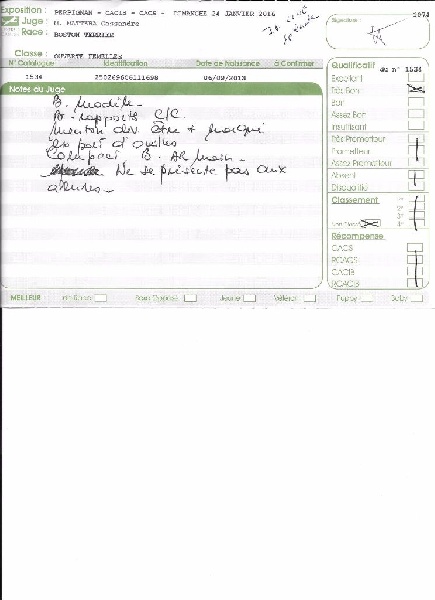 Exposition : PERPIGNAN - CACIB - CACS - DIMANCHE 24 JANVIER 2016
Juge : M. MATTERA Cassandre
Race : BOSTON TERRIER
Signature : 1074
Classe : OUVERTE FEMELLES
N° Catalogue Identification Date de Naissance à Confirmer
1534 250269606111698 06/09/2013
Notes du Juge
B. Modèle -
B. rapports C/C.
Menton dev. être + marqué
Compact B.
Ne se présente pas aux
Qualificatif du n° 1534
Excellent
Très Bon
Bon
Assez Bon
Insuffisant
Très Prometteur
Prometteur
Assez Prometteur
Absent
Disqualifié
Classement 1er
2e
3e
Non Classé 4e
Récompense
CACS
RCACS
CACIB
RCACIB
MEILLEUR : Jeune Vétéran Puppy Baby